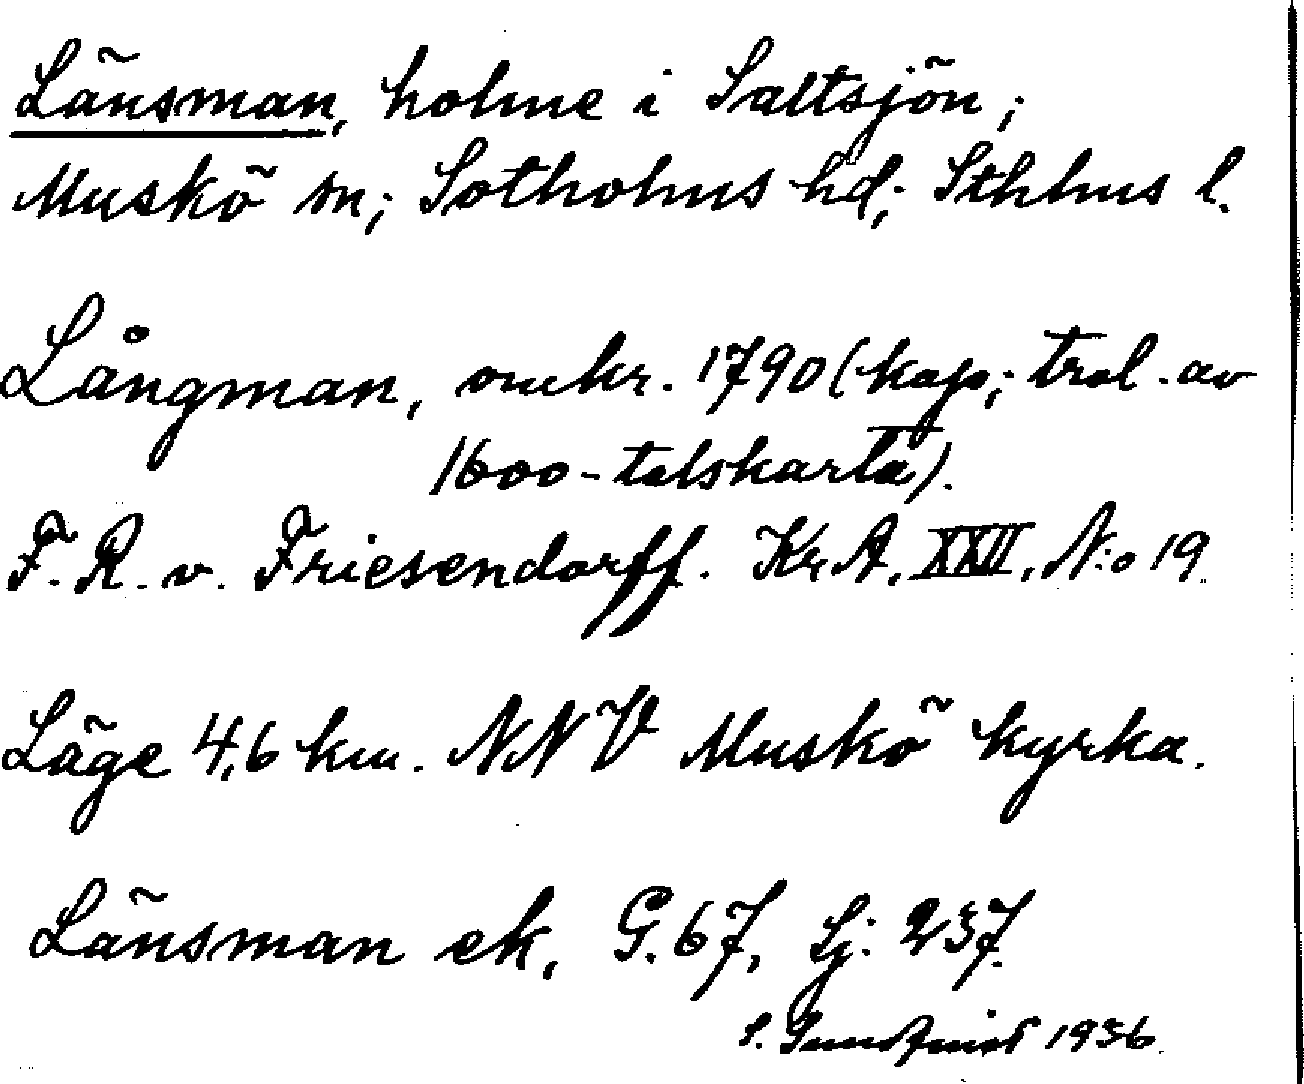 Länsman, holme i Saltsjön;
Muskö sn; Sotholms hd; Sthlms l.
Långman, omkr. 1790 (kop; trol. av
1600-talskarta).
F. R. v. Friesendorff. Kr. A. XXII, N:o 19.
Läge 4,6 km. NNV Muskö kyrka.
Länsman ek, G. 67, Sj: 237.
S. Sundqvist 1936.